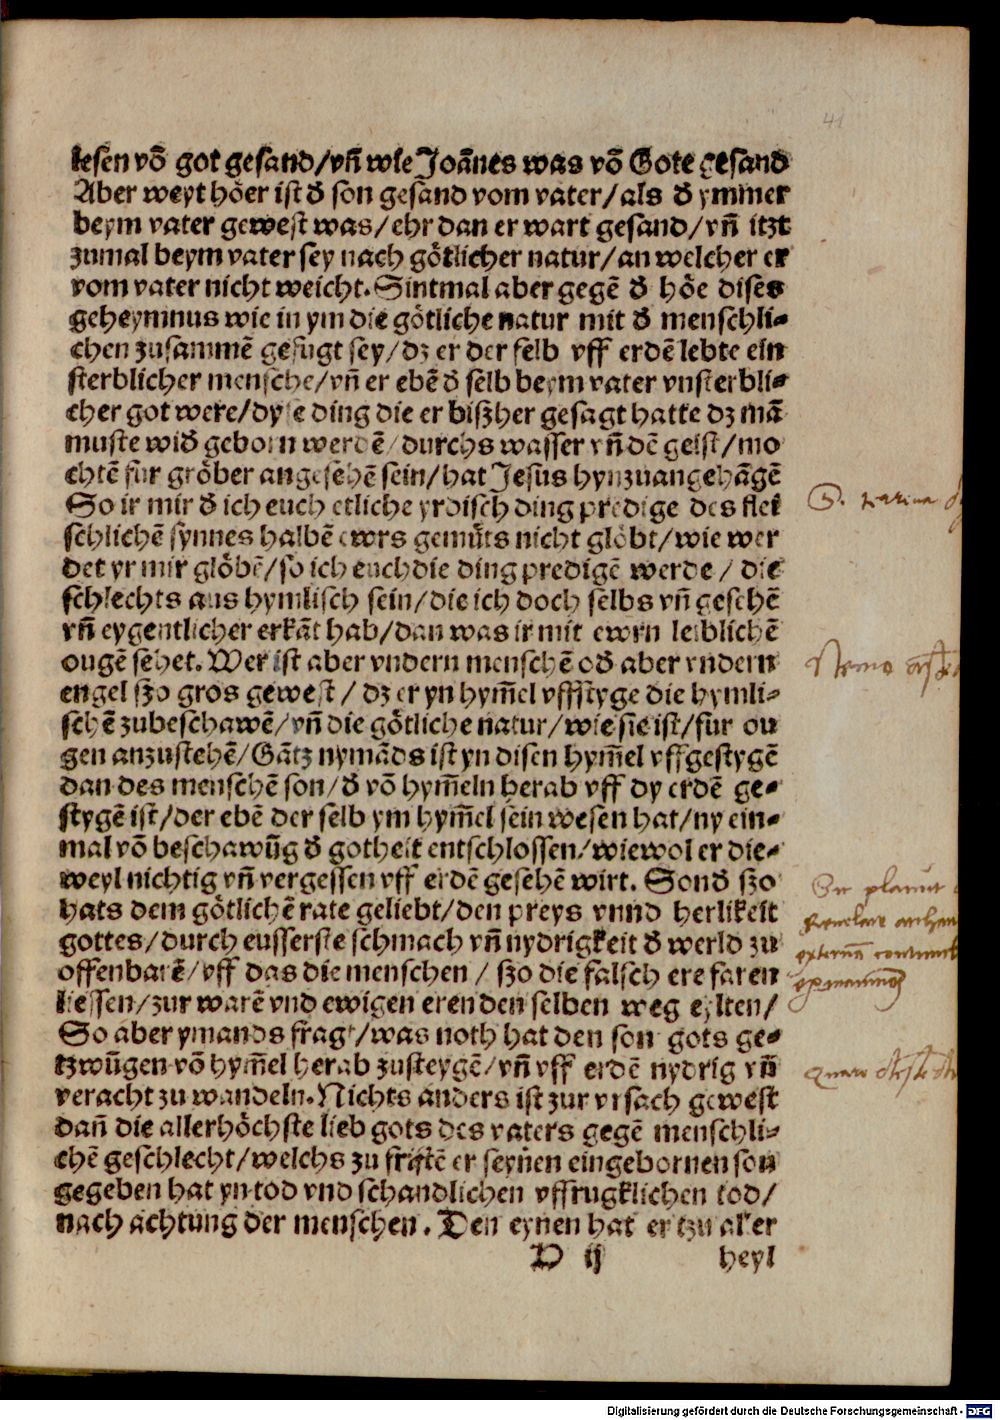 lesen võ got gesand/vñ wie Joãnes was võ Gote gesand
Aber weyt höer ist đ son gesand vom vater/als đ ymmer
beym vater gewest was/ehr dan er wart gesand/vñ itzt
zumal beym vater sey nach götlicher natur/an welcher er
vom vater nicht weicht. Sintmal aber gegẽ đ höe dises
geheymnus wie in ym die götliche natur mit đ menschli-
chen zusammẽ gefugt sey/dz er der selb vff erdẽ lebte ein
sterblicher mensche/vñ er ebẽ đ selb beym vater vnsterbli-
cher got were/dyse ding die er bißher gesagt hatte dz mã
muste wiđ geborn werdẽ/durchs wasser vñ dẽ geist/mo
chtẽ fur gröber angesehẽ sein/hat Jesus hynzuangehãgẽ
So ir mir đ ich euch etliche yrdisch ding predige des flei
schlichẽ synnes halbẽ ewrs gemüts nicht glöbt/wie wer
det yr mir glöbẽ/so ich euch die ding predigẽ werde/die
schlechts aus hymlisch sein/die ich doch selbs vñ gesehẽ
vñ eygentlicher erkãt hab/dan was ir mit ewrn leiblichẽ
ougẽ sehet. Wer ist aber vndern menschẽ ođ aber vndern
engel szo gros gewest/dz er yn hym̃el vffstyge die hymli-
schẽ zubeschawẽ/vñ die götliche natur/wie sie ist/fur ou
gen anzustehẽ/Gãtz nymãds ist yn disen hym̃el vffgestygẽ
dan des menschẽ son/đ võ hym̃eln herab vff dy erdẽ ge-
stygẽ ist/der ebẽ der selb ym hym̃el sein wesen hat/ny ein-
mal võ beschawũg đ gotheit entschlossen/wiewol er die-
weyl nichtig vñ vergessen vff erdẽ gesehẽ wirt. Sonđ szo
hats dem götlichẽ rate geliebt/den preys vnnd herlikeit
gottes/durch eusserste schmach vñ nydrigkeit đ werld zu
offenbarẽ/vff das die menschen/szo die falsch ere faren
liessen/zur warẽ vnd ewigen eren den selben weg eylten/
So aber ymands fragt/was noth hat den son gots ge-
tzwũgen võ hym̃el herab zusteygẽ/vñ vff erdẽ nydrig vñ
veracht zu wandeln. Nichts anders ist zur vrsach gewest
dañ die allerhöchste lieb gots des vaters gegẽ menschli-
chẽ geschlecht/welchs zu fristẽ er seynen eingebornen son
gegeben hat yn tod vnd schandlichen vffrugklichen tod/
nach achtung der menschen. Den eynen hat er tzu aller
D ij heyl
41
Nemo
Digitalisierung gefördert durch die Deutsche Forschungsgemeinschaft - DFG